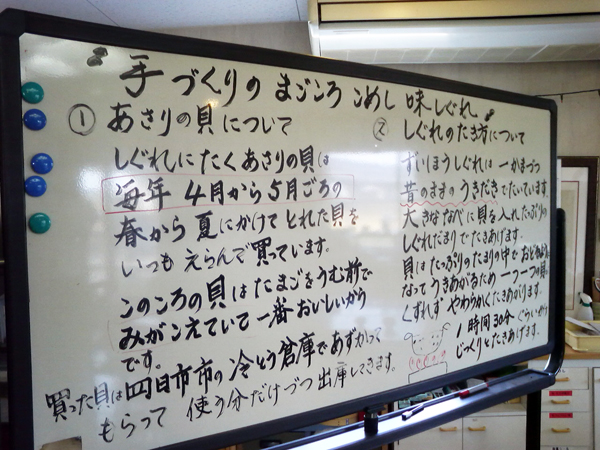 手づくりの まごころ こめし 味しぐれ
① あさりの貝について
しぐれにたくあさりの貝は
毎年 4月から5月ごろの
春から夏にかけてとれた貝を
いつもえらんで買っています。
このころの貝はたまごをうむ前で
みがこえていて一番おいしいから
です。
買った貝は四日市市の冷とう倉庫であずかって
もらって 使う分だけづつ出庫してきます。
② しぐれのたき方について
ずいほうしぐれは一かまづつ
昔のままのうきだきでたいています。
大きなナベに貝を入れたっぷりの
しぐれだまりでたきあげます。
貝はたっぷりのたまりの中で
なってうきあがるため 一つ一つの貝が
くずれず やわらかくたきあがります。
1時間30分ぐらいかけ
じっくりとたきあげます。